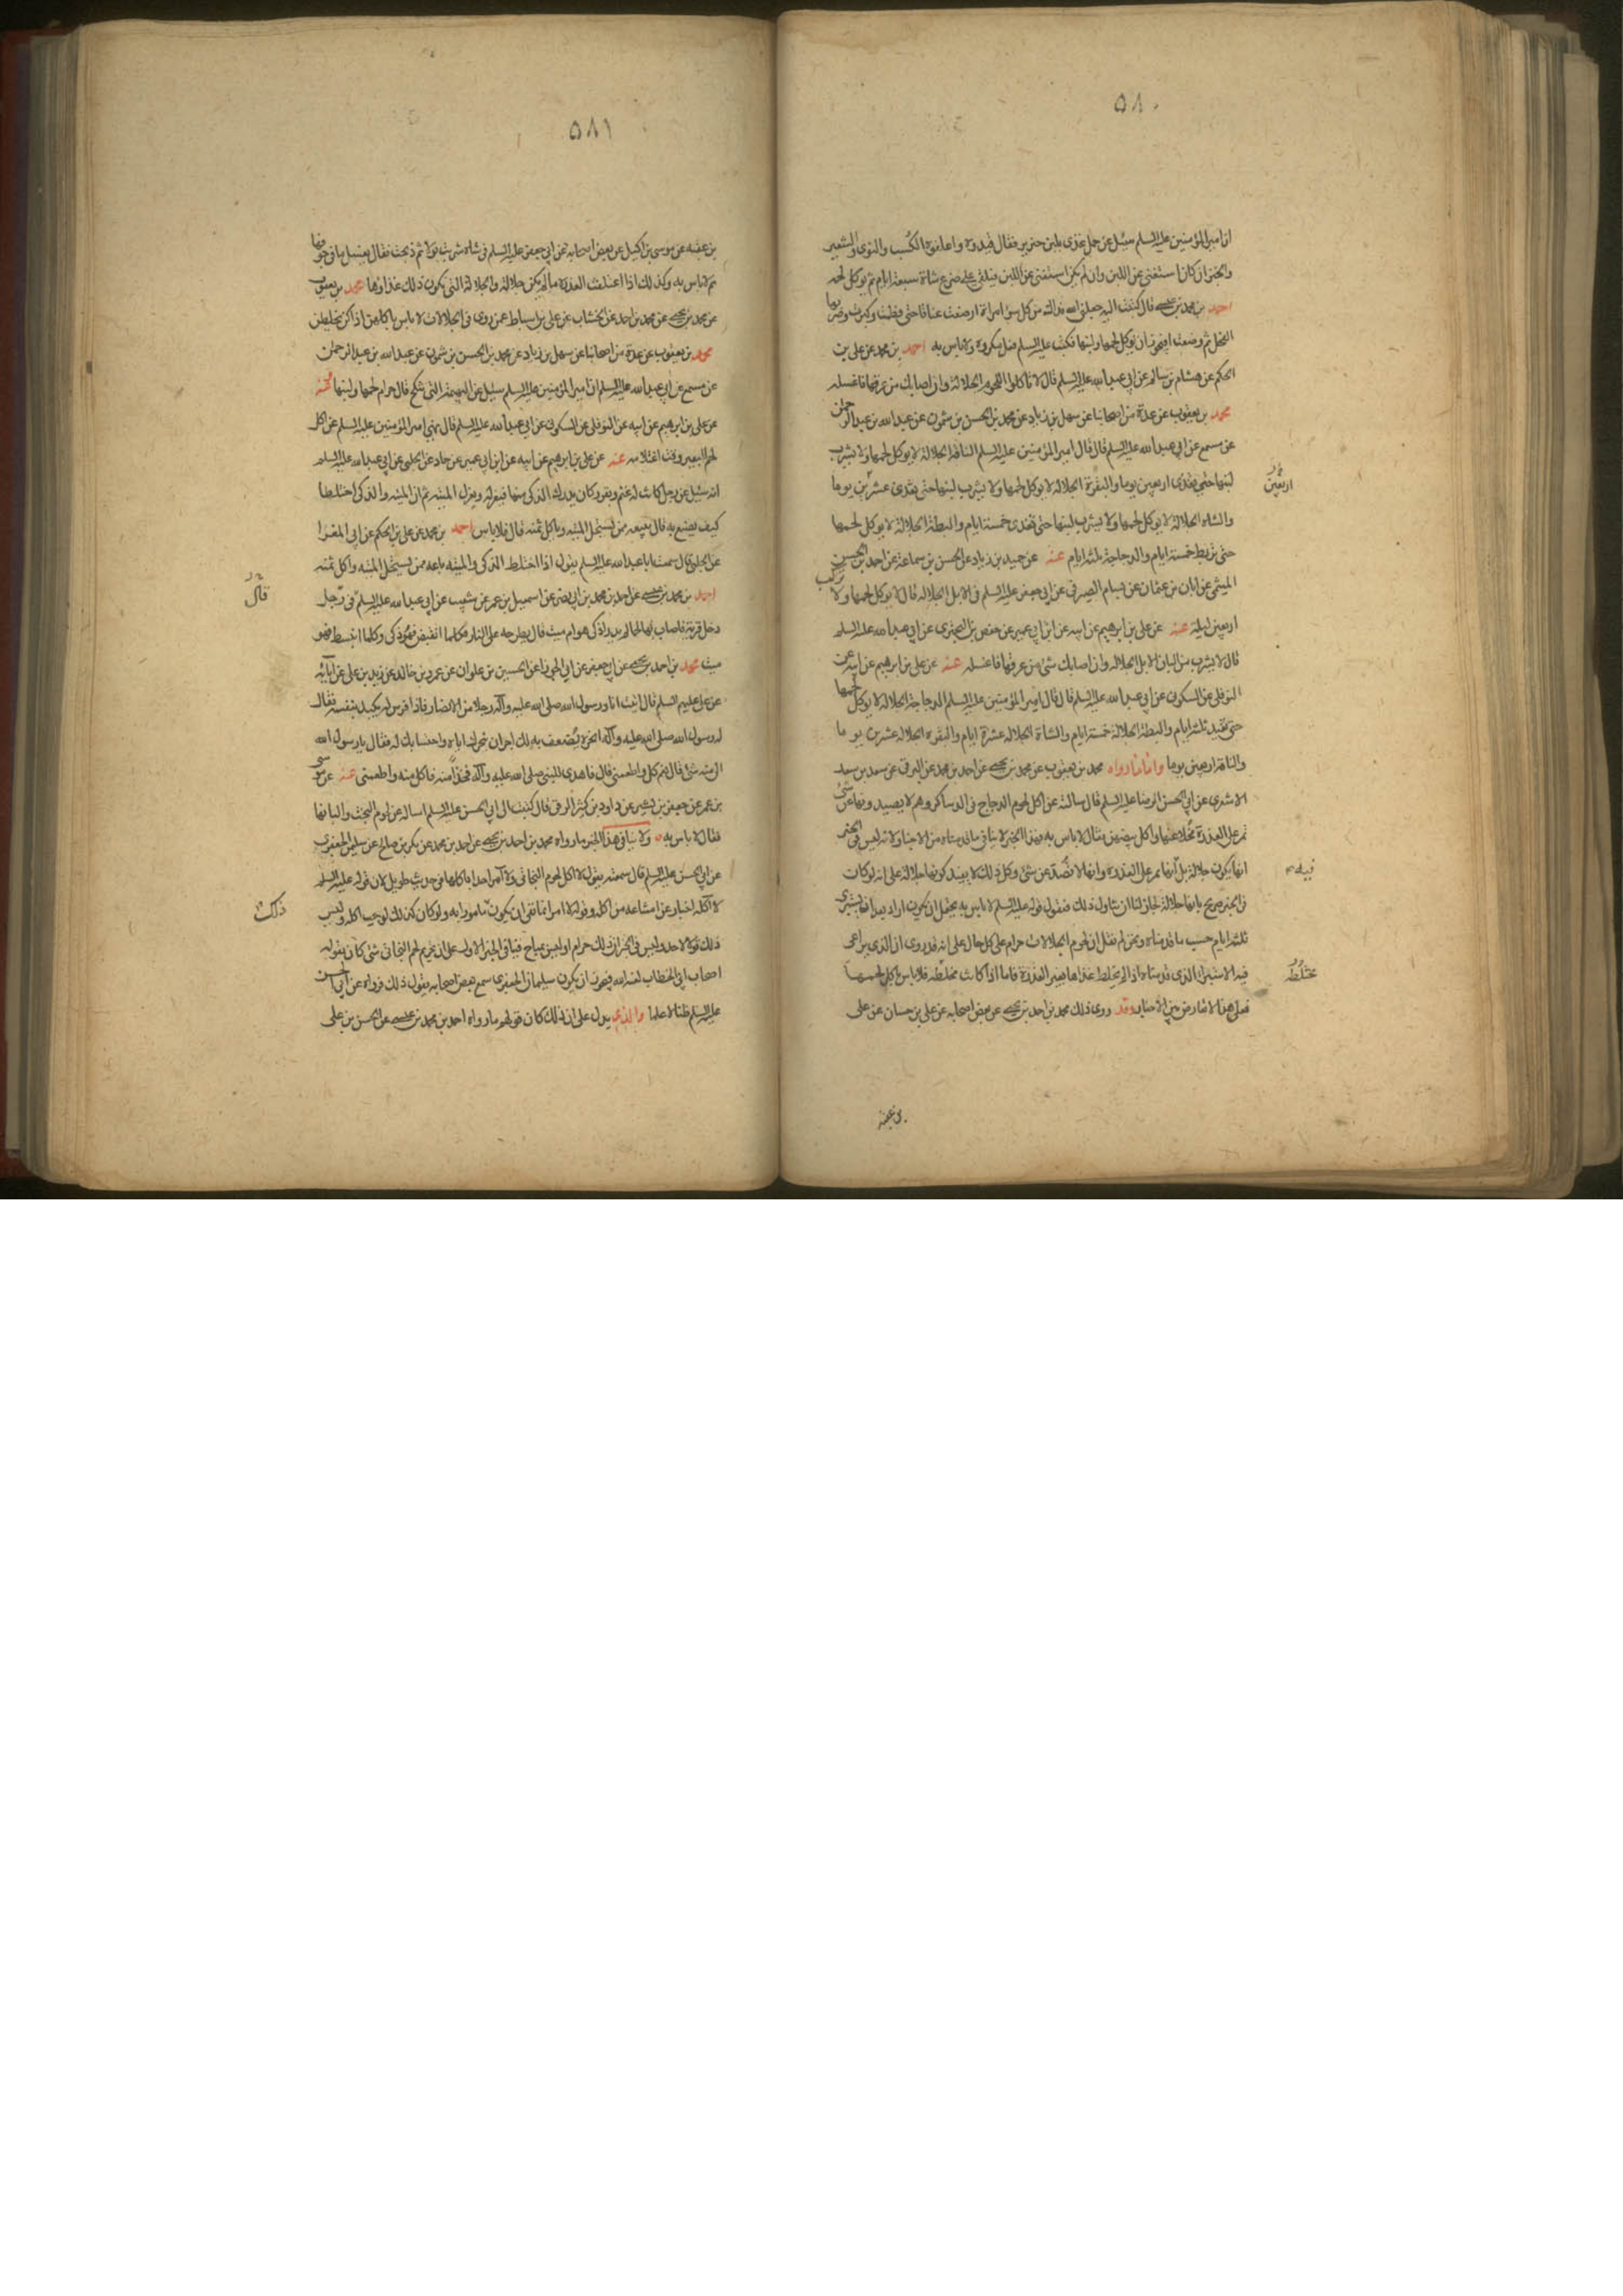 ٥٨٠
ان امير المؤمنين عليه السلم سئل عن حمل غذى بلبن خنزير فقال قيدوه واعلفوه الكسب والنوى والشعير
والخبز ان كان استغنى عن اللبن وان لم يكن استغنى عن اللبن فيلقى على ضرع شاة سبعة ايام ثم يوكل لحمه
احمد بن محمد بن عيسى قال كتبت اليه جعلني الله فداك من كل سوء امراة ارضعت عناقا حتى فطمت وكبرت وضربها
الفحل ثم وضعت ايجوز ان يوكل لحمها ولبنها فكتب عليه السلم فعل مكروه ولا باس به احمد بن محمد عن علي بن
الحكم عن هشام بن سالم عن ابي عبد الله عليه السلم قال لا تاكلوا اللحوم الجلالة وان اصابك من عرقها فاغسله
محمد بن يعقوب عن عدة من اصحابنا عن سهل بن زياد عن محمد بن الحسن بن شمون عن عبد الله بن عبد الرحمن
عن مسمع عن ابي عبد الله عليه السلم قال قال امير المؤمنين عليه السلم الناقة الجلالة لا يوكل لحمها ولا يشرب
لبنها حتى تغذى اربعين يوما والبقرة الجلالة لا يوكل لحمها ولا يشرب لبنها حتى تغذى عشرين يوما
اربعين
والشاه الجلالة لا يوكل لحمها ولا يشرب لبنها حتى تغذى خمسة ايام والبطة الجلالة لا يوكل لحمها
حتى تربط خمسة ايام والدجاجة ثلثة ايام عنه عن حميد بن زياد عن الحسن بن سماعة عن احمد بن الحسن
الميثمي عن ابان بن عثمان عن بسام الصيرفي عن ابي جعفر عليه السلم في الابل الجلاله قال لا يوكل لحمها ولا تركب
اربعين ليلة عنه عن علي بن ابرهيم عن ابيه عن ابن ابي عمير عن حفص بن البختري عن ابي عبد الله عليه السلم
قال لا يشرب من البان الابل الجلاله وان اصابك شئ من عرقها فاغسله عنه عن علي بن ابرهيم عن ابيه عن
النوفلي عن السكوني عن ابي عبد الله عليه السلم قال قال امير المؤمنين عليه السلم الدجاجة الجلالة لا يوكل لحمها
حتى تقيد ثلثة ايام والبطة الجلالة خمسة ايام والشاة الجلالة عشرة ايام والبقره الجلاله عشرين يوما
والناقة اربعين يوما واما ما رواه محمد بن يعقوب عن محمد بن يحيى عن احمد بن محمد عن البرقي عن سعد بن سعد
الاشعري عن ابي الحسن الرضا عليه السلم قال سالته عن اكل لحوم الدجاج في الدساكر وهم لا يصيدونها عن شئ
تمر على العذرة مخلا عنها واكل بيضهن فقال لا باس به فهذا الخبر لا ينافي ما قدمناه من الاخبار لانه ليس في الخبر
انها يكون جلالة بل انها تمر على العذره وانها لا تصد عن شئ وكل ذلك لا يفيد كونها جلالة على انه لو كان
فيه
في الخبر صريح بانها جلالة لجاز لنا ان نتاول ذلك فنقول قوله عليه السلم لا باس به يحتمل ان يكون اراد بعد ان يستبرى
ثلثة ايام حسب ما قدمناه ونحن لم نقل ان لحوم الجلالات حرام على كل حال على انه قد روى ان الذي يراعى
فيه الاستبراء الذي قدمناه اذا لم يختلط غذاها بغير العذرة فاما اذا كانت مختلطه فلا باس باكل لحمها
مختلطه
فعلى هذا لا تعارض بين الاخبار وقد روى ذلك محمد بن احمد بن يحيى عن بعض اصحابه عن علي بن حسان عن علي
بن عقبه
٥٨١
بن عقبه عن موسى بن اكيل عن بعض اصحابه عن ابي جعفر عليه السلم في شاة شربت بولا ثم ذبحت فقال يغسل ما في جوفها
ثم لا باس به وكذلك اذا اعتلفت العذرة ما لم يكن جلالة والجلالة التي يكون ذلك غذاؤها محمد بن يعقوب
عن محمد بن يحيى عن محمد بن احمد عن الخشاب عن علي بن اسباط عمن روى في الجلالات لا باس باكلهن اذا كن يخلطن
محمد بن يعقوب عن عدة من اصحابنا عن سهل بن زياد عن محمد بن الحسن بن شمون عن عبد الله بن عبد الرحمن
عن مسمع عن ابي عبد الله عليه السلم ان امير المؤمنين عليه السلم سئل عن البهيمة التي تنكح قال حرام لحمها ولبنها عنه
عن علي بن ابرهيم عن ابيه عن النوفلي عن السكوني عن ابي عبد الله عليه السلم قال نهى امير المؤمنين عليه السلم عن اكل
لحم البعير وقت اغتلامه عنه عن علي بن ابرهيم عن ابيه عن ابن ابي عمير عن حماد عن الحلبي عن ابي عبد الله عليه السلم
انه سئل عن رجل كانت له غنم وبقر وكان يدرك الذكي منها فيعزله ويعزل الميته ثم ان الميته والذكي اختلطا
كيف يصنع به قال يبيعه ممن يستحل الميته وياكل ثمنه قال فلا باس احمد بن محمد عن علي بن الحكم عن ابي المغرا
عن الحلبي قال سمعت ابا عبد الله عليه السلم يقول اذا اختلط الذكي والميته باعه ممن يستحل الميته واكل ثمنه
احمد بن محمد بن عيسى عن احمد بن محمد بن ابي نصر عن اسمعيل بن عمر عن شعيب عن ابي عبد الله عليه السلم في رجل
قال
دخل قرية فاصاب لها لحما لم يدر اذكي هو ام ميت قال يطرحه على النار فكلما انقبض فهو ذكي وكلما انبسط فهو
ميت محمد بن احمد بن يحيى عن ابي جعفر عن ابي الجوزا عن الحسين بن علوان عن عمرو بن خالد عن زيد بن علي عن ابائه
عن علي عليهم السلم قال اتيت انا ورسول الله صلى الله عليه وآله رجلا من الانصار فاذا فرس له يكيد بنفسه فقال
له رسول الله صلى الله عليه وآله انحره يضعف به لك اجران نحرك اياه واحتسابك له فقال يا رسول الله
الى منه شئ قال نعم كل واطعمني قال فاهدى للنبي صلى الله عليه وآله فخذا منه فاكل منه واطعمني عنه عن موسى
بن عمر عن جعفر بن بشير عن داود بن كثير الرقي قال كتبت الى ابي الحسن عليه السلم اساله عن لحوم البخت والبانها
فقال لا باس به ولا ينافي هذا الخبر ما رواه محمد بن احمد بن يحيى عن احمد بن محمد عن بكر بن صالح عن سليمن الجعفري
عن ابي الحسن عليه السلم قال سمعته يقول لا اكل لحوم البخاتي ولا آمر احدا باكلها في حديث طويل لان قوله عليه السلم
لا آكله اخبار عن امتناعه من اكله وقوله لا امر انما نفى ان يكون مامورا به ولو كان كذلك لوجب اكله وليس
ذلك
ذلك قولا لاحد وليس في الخبر ان ذلك حرام او ليس بمباح فينافي الخبر الاول على ان تحريم لحم البخاتي شئ كان يقوله
اصحاب ابي الخطاب لعنه الله فيجوز ان يكون سليمان الجعفري سمع بعض اصحابه يقول ذلك فرواه عن ابي الحسن
عليه السلم ظنا لا علما والذي يدل على ان ذلك كان قولهم ما رواه احمد بن محمد بن عيسى عن الحسن بن علي